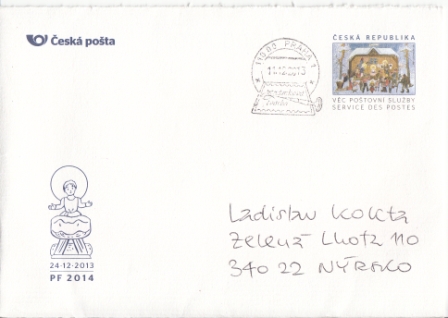 Česká pošta
11000 PRAHA 1
11.12.2013
ČESKÁ REPUBLIKA
VĚC POŠTOVNÍ SLUŽBY
SERVICE DES POSTES
Ladislav
Zelená Lhota 110
340 22 NÝRSKO
24-12-2013
PF 2014